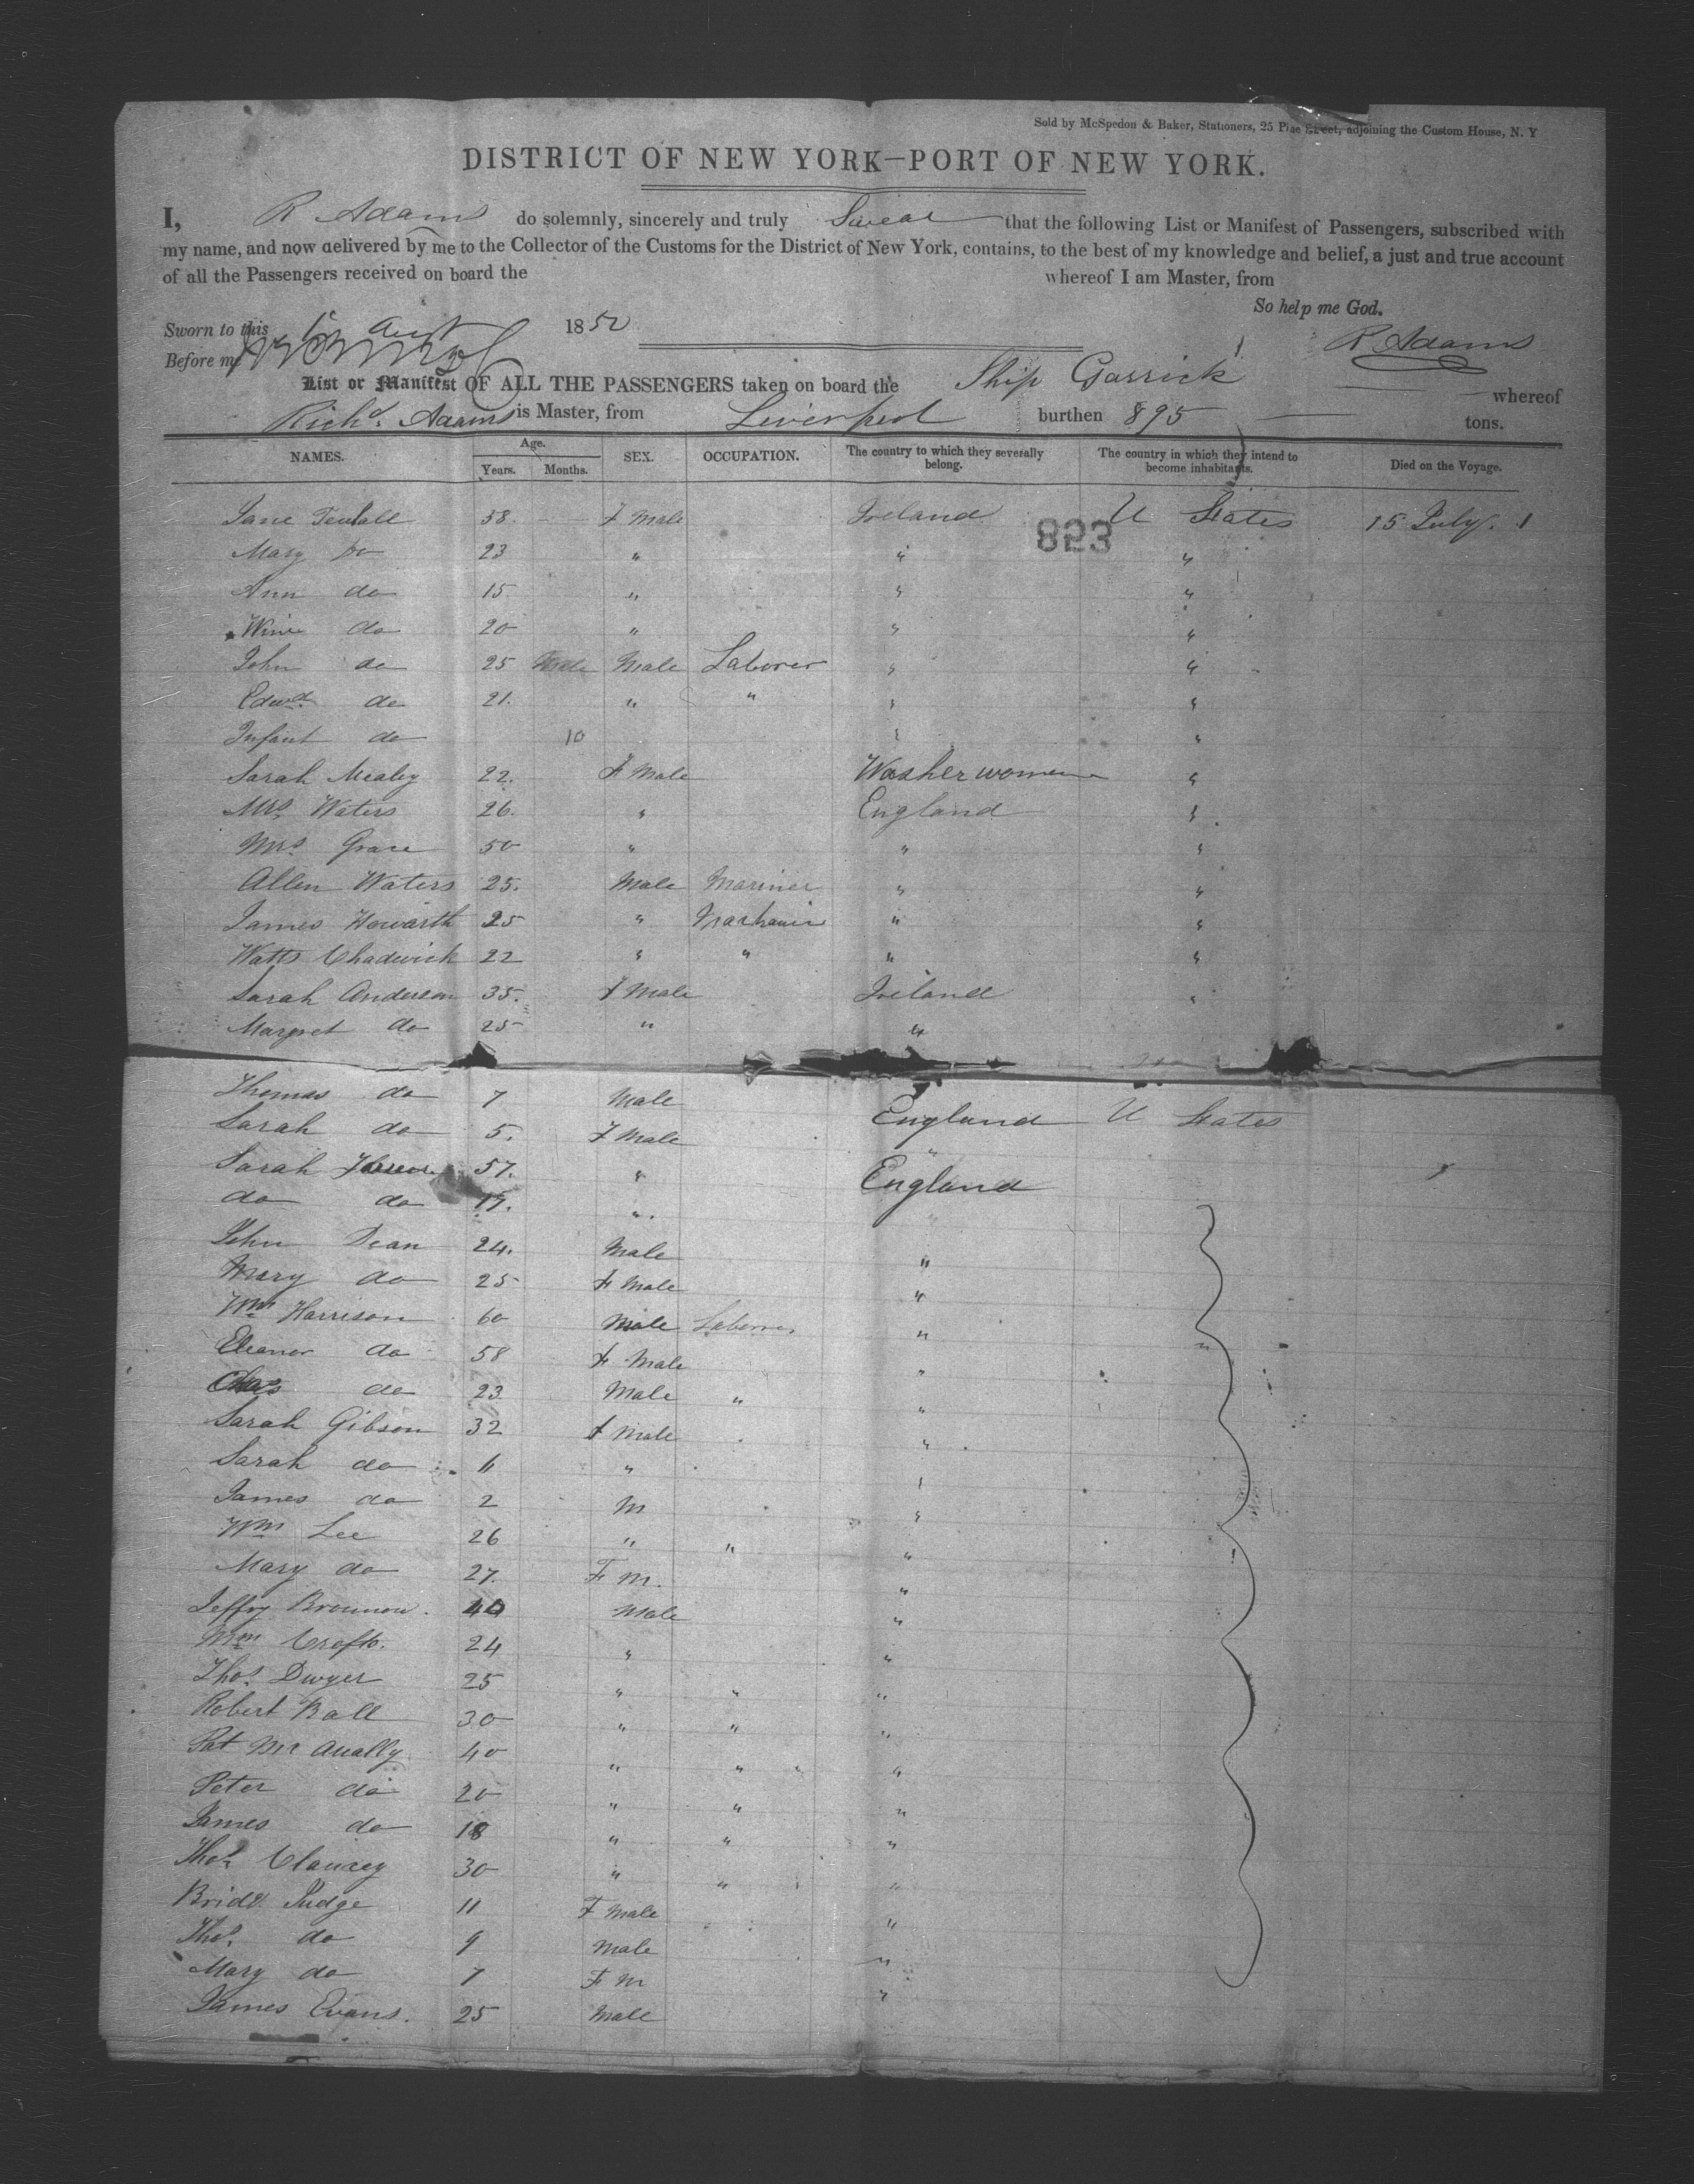 Sold by McSpedon & Baker, Stationers, 25 Pine Street, adjoining the Custom House, N. Y
DISTRICT OF NEW YORK—PORT OF NEW YORK.
I, R Adams do solemnly, sincerely and truly Swear that the following List or Manifest of Passengers, subscribed with
my name, and now delivered by me to the Collector of the Customs for the District of New York, contains, to the best of my knowledge and belief, a just and true account
of all the Passengers received on board the whereof I am Master, from
So help me God.
Sworn to this Aust 1852
Before me R Adams
List or Manifest OF ALL THE PASSENGERS taken on board the Ship Garrick whereof
Richd. Adams is Master, from Liverpool burthen 895 tons.
NAMES. Age. Years. Months. SEX. OCCUPATION. The country to which they severally belong. The country in which they intend to become inhabitants. Died on the Voyage.
Jane 58. F Male Ireland U States 15 July. 1
823
Mary Do 23 " " "
Ann do 15 " " "
do 20 " " "
John do 25 Male Male Laborer " "
Edwd. do 21. " " " "
Infant do 10 " "
Sarah Mealey 22. F Male Washerwomen "
Mrs Waters 26. " England "
Mrs. Grace 50 " " "
Allen Waters 25. Male Mariner " "
James Howarth 25 " " "
Watts Chadwick 22 " " " "
Sarah Anderson 35. F Male Ireland "
Margret do 25 " "
Thomas do 7 Male England U States
Sarah do 5. F Male "
Sarah 57. " England
do do 17. "
John Dean 24. Male "
Mary do 25 F Male "
Wm Harrison 60 Male Laborer "
Eleanor do 58 F Male "
Chas do 23 Male " "
Sarah Gibson 32 F Male "
Sarah do " "
James do 2 M "
Wm Lee 26 " " "
Mary do 27. F M. "
Jeffry 40 Male "
Wm Crofts. 24 " "
Thos. Dwyer 25 " " "
Robert Ball 30 " " "
Pat Mc Anally 40 " " "
Peter do 20 " " "
James do 18 " " "
Thos. Clancey 30 " " "
Bridt. Judge 11 F Male "
Thos. do 9 Male "
Mary do 7 F M "
James Evans. 25 Male